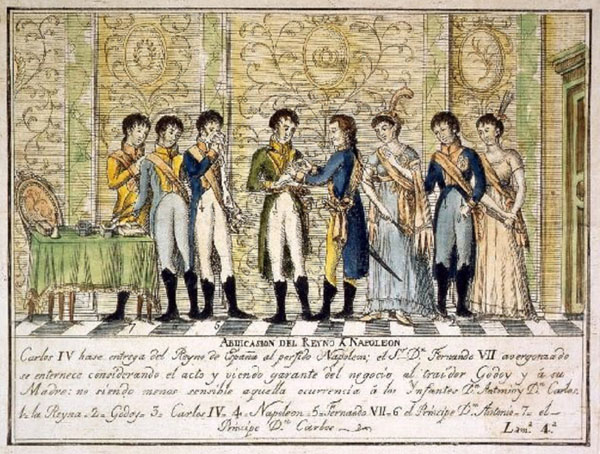 ABDICASION DEL REYNO Â NAPOLEON
Carlos IV hase entrega del Reyno de España al perfido Napoleon; el Sr. Dn. Fernando VII avergonzado
se enternece considerando el acto y viendo garante del negocio al traidor Godoy y â su
Madre: no siendo menor sensible aquella ocurrencia â los Infantes Dn. Antonio y Dn. Carlos.
1- la Reyna - 2 - Godoy - 3 - Carlos IV - 4 - Napoleon - 5 - Fernando VII - 6 el Principe Dn. Antonio - 7 - el
Principe Dn. Carlos
Lama. 4a.